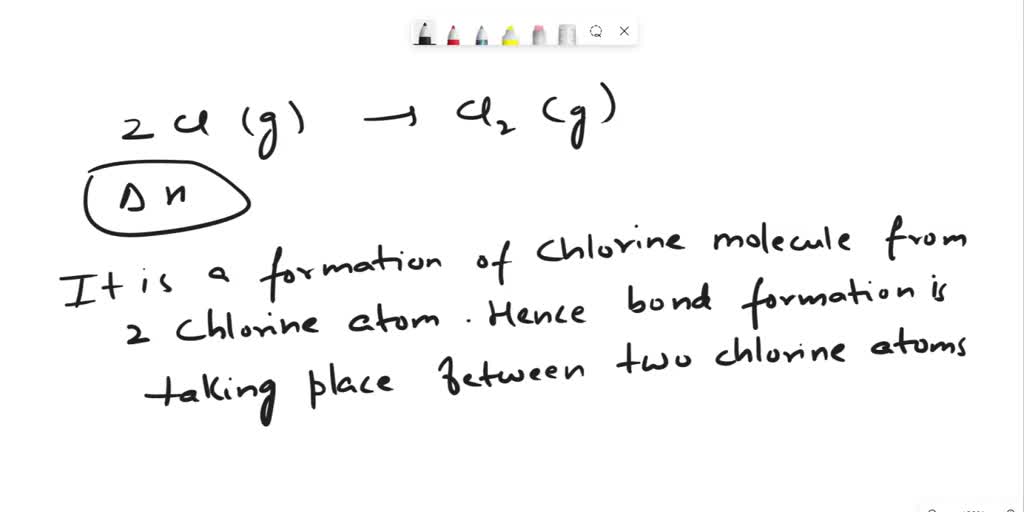 2 Cl (g) → Cl₂ (g)
Δ H
It is a formation of chlorine molecule from
2 chlorine atom. Hence bond formation is
taking place between two chlorine atoms